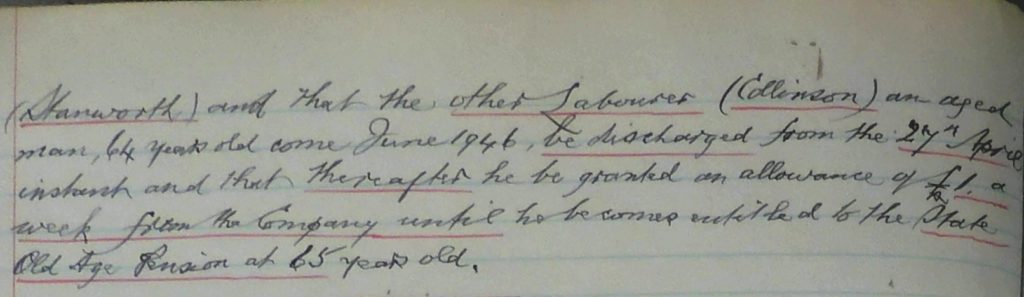 (Stanworth) and that the other Labourer (Edlinson) an aged
man, 64 years old come June 1946, be discharged from the 27th April
instant and that thereafter he be granted an allowance of £1. a
week from the Company until he becomes entitled to the State
Old Age Pension at 65 years old.